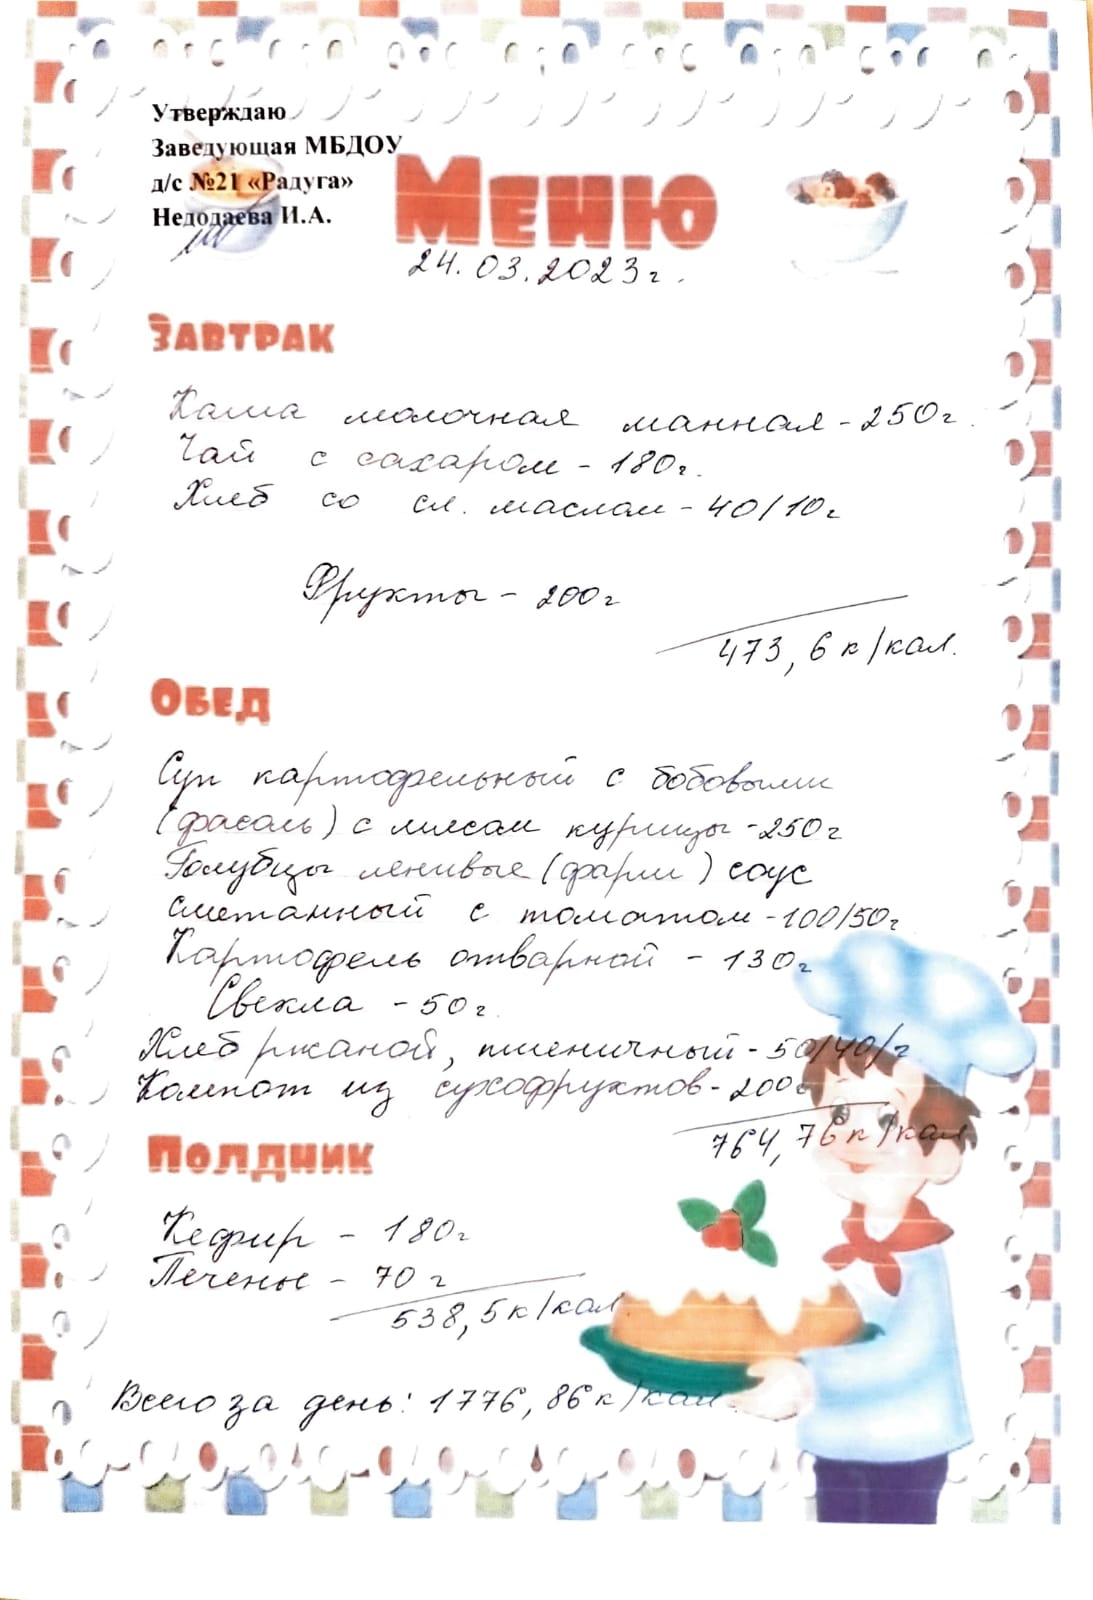 Утверждаю
Заведующая МБДОУ
д/с №21 «Радуга»
Недодаева И.А.
Меню
24.03.2023г.
Завтрак
Каша молочная манная - 250г.
Чай с сахаром - 180г.
Хлеб со сл. маслом - 40/10г
Фрукты - 200г
473,6 к/кал.
Обед
Суп картофельный с бобовыми
(фасоль) с мясом курицы - 250г
Голубцы ленивые (фарш) соус
сметанный с томатом - 100/50г
Картофель отварной - 130г
Свекла - 50г.
Хлеб ржаной, пшеничный - 50/40/г
Компот из сухофруктов - 200г
764,76 к/кал
Полдник
Кефир - 180г
Печенье - 70г
538,5 к/кал.
Всего за день: 1776,86 к/кал.